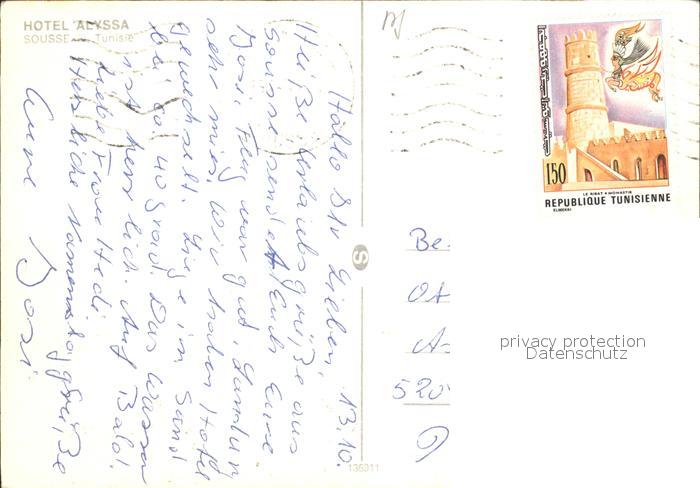 HOTEL ALYSSA
SOUSSE Tunisie
13.10.
Hallo Ihr Lieben,
Heiße Urlaubsgrüße aus
Sousse sendet Euch Eure
Josi. Flug war gut, Landung
sehr mies. Wir haben Hotel
gewechselt. Liege im Sand
bei ca. 40 grad. Das Wasser
ist herrlich. Auf Bald!
Liebe Frau Hedi
Herzliche Namenstaggrüße
Eure Josi.
136911
S
150
LE RIBAT * MONASTIR
REPUBLIQUE TUNISIENNE
ELMEKKI
Be
OA
A
520
privacy protection
Datenschutz